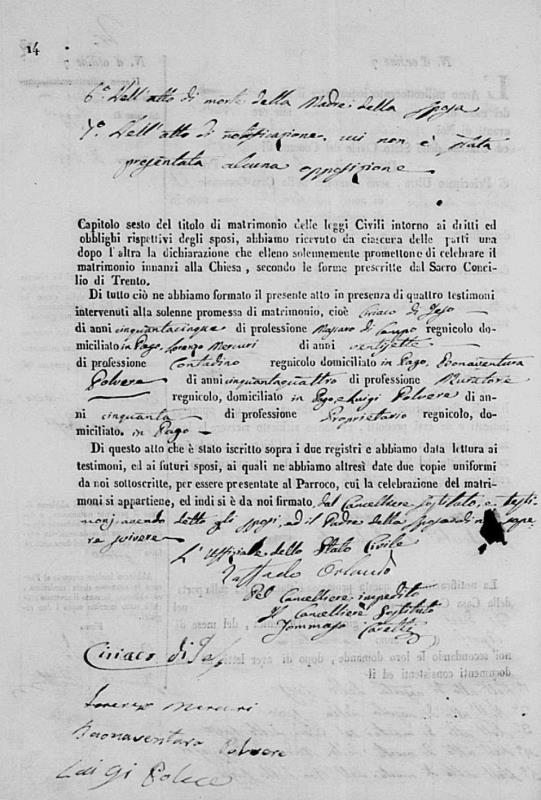 14
6.° Dell'atto di morte della Madre della sposa
7.° Dell'atto di notificazione, cui non è stata
presentata alcuna opposizione
Capitolo sesto del titolo di matrimonio delle leggi Civili intorno ai dritti ed
obblighi rispettivi degli sposi, abbiamo ricevuto da ciascura delle parti una
dopo l'altra la dichiarazione che elleno solennemente promettono di celebrare il
matrimonio innanzi alla Chiesa, secondo le forme prescritte dal Sacro Conci-
lio di Trento.
Di tutto ciò ne abbiamo formato il presente atto in presenza di quattro testimoni
intervenuti alla solenne promessa di matrimonio, cioè Ciriaco di Jeso
di anni cinquantacinque di professione Massaro di Campo regnicolo do-
miciliato in Pago, Lorenzo Mercuri di anni ventisette
di professione Contadino regnicolo domiciliato in Pago, Bonaventura
Polvere di anni cinquantaquattro di professione Muratore
regnicolo, domiciliato in Pago, e Luigi Polvere di an-
ni cinquanta di professione Proprietario regnicolo, do-
miciliato in Pago
Di questo atto che è stato iscritto sopra i due registri e abbiamo data lettura ai
testimoni, ed ai futuri sposi, ai quali ne abbiamo altresì date due copie uniformi
da noi sottoscritte, per essere presentate al Parroco, cui la celebrazione del matri-
moni si appartiene, ed indi si è da noi firmato, dal Cancelliere sostituto, e testi-
monj avendo detto gli sposi, ed il Padre della sposa di
scrivere
L'Uffiziale dello Stato Civile
Raffaele Orlando
Pel Cancelliere impedito
Il Cancelliere Sostituto
Tommaso
Ciriaco di Jeso
Lorenzo Mercuri
Buonaventura Polvere
Luigi Polvere